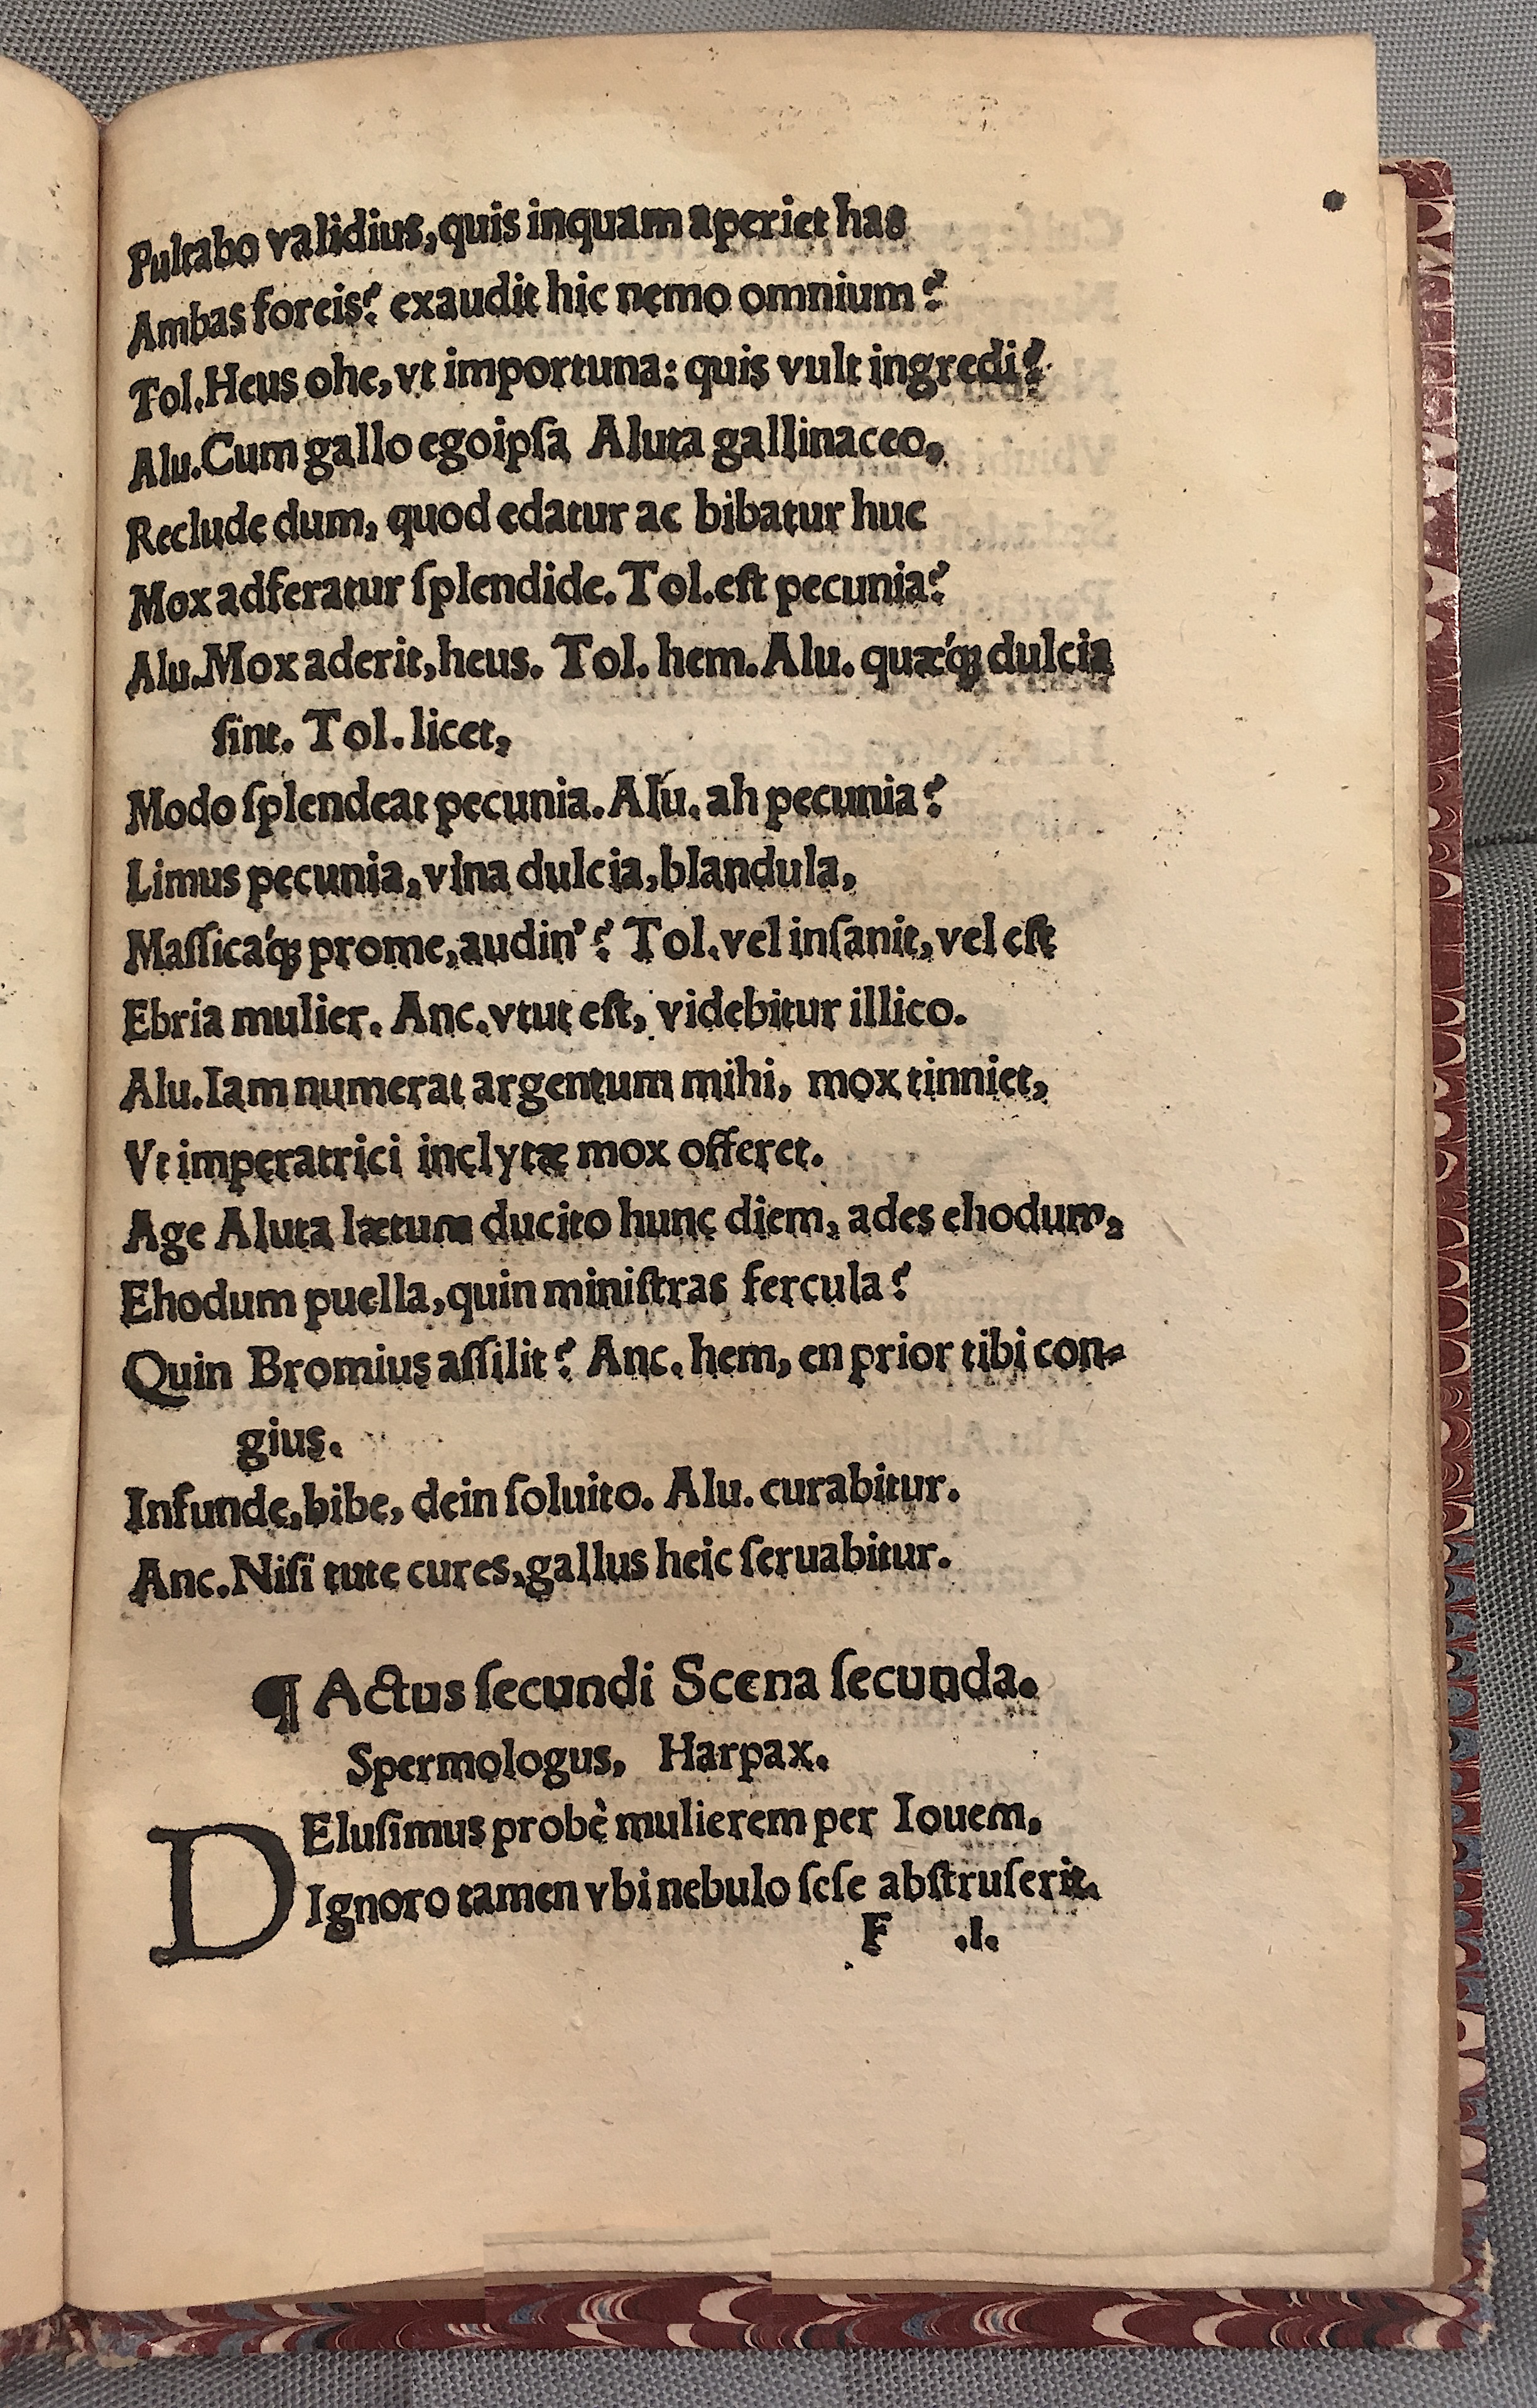 Pultabo validius, quis inquam aperiet has
Ambas foreis? exaudit hic nemo omnium?
Tol. Heus ohe, vt importuna: quis vult ingredi?
Alu. Cum gallo egoipſa Aluta gallinaceo,
Reclude dum, quod edatur ac bibatur huc
Mox adferatur ſplendide. Tol. eſt pecunia?
Alu. Mox aderit, heus. Tol. hem. Alu. quæq́ꝫ dulcia
ſint. Tol. licet,
Modo ſplendeat pecunia. Alu. ah pecunia?
Limus pecunia, vina dulcia, blandula,
Maſſicaq́ꝫ prome, audin'? Tol. vel inſanit, vel eſt
Ebria mulier. Anc. vtut eſt, videbitur illico.
Alu. Iam numerat argentum mihi, mox tinniet,
Vt imperatrici inclytæ mox offeret.
Age Aluta lætum ducito hunc diem, ades ehodum,
Ehodum puella, quin miniſtras fercula?
Quin Bromius aſſilit? Anc. hem, en prior tibi con-
gius.
Infunde, bibe, dein ſoluito. Alu. curabitur.
Anc. Niſi tute cures, gallus heic ſeruabitur.
¶ Actus ſecundi Scena ſecunda.
Spermologus, Harpax.
DEluſimus probè mulierem per Iouem,
Ignoro tamen vbi nebulo ſeſe abſtruſerit.
F .I.